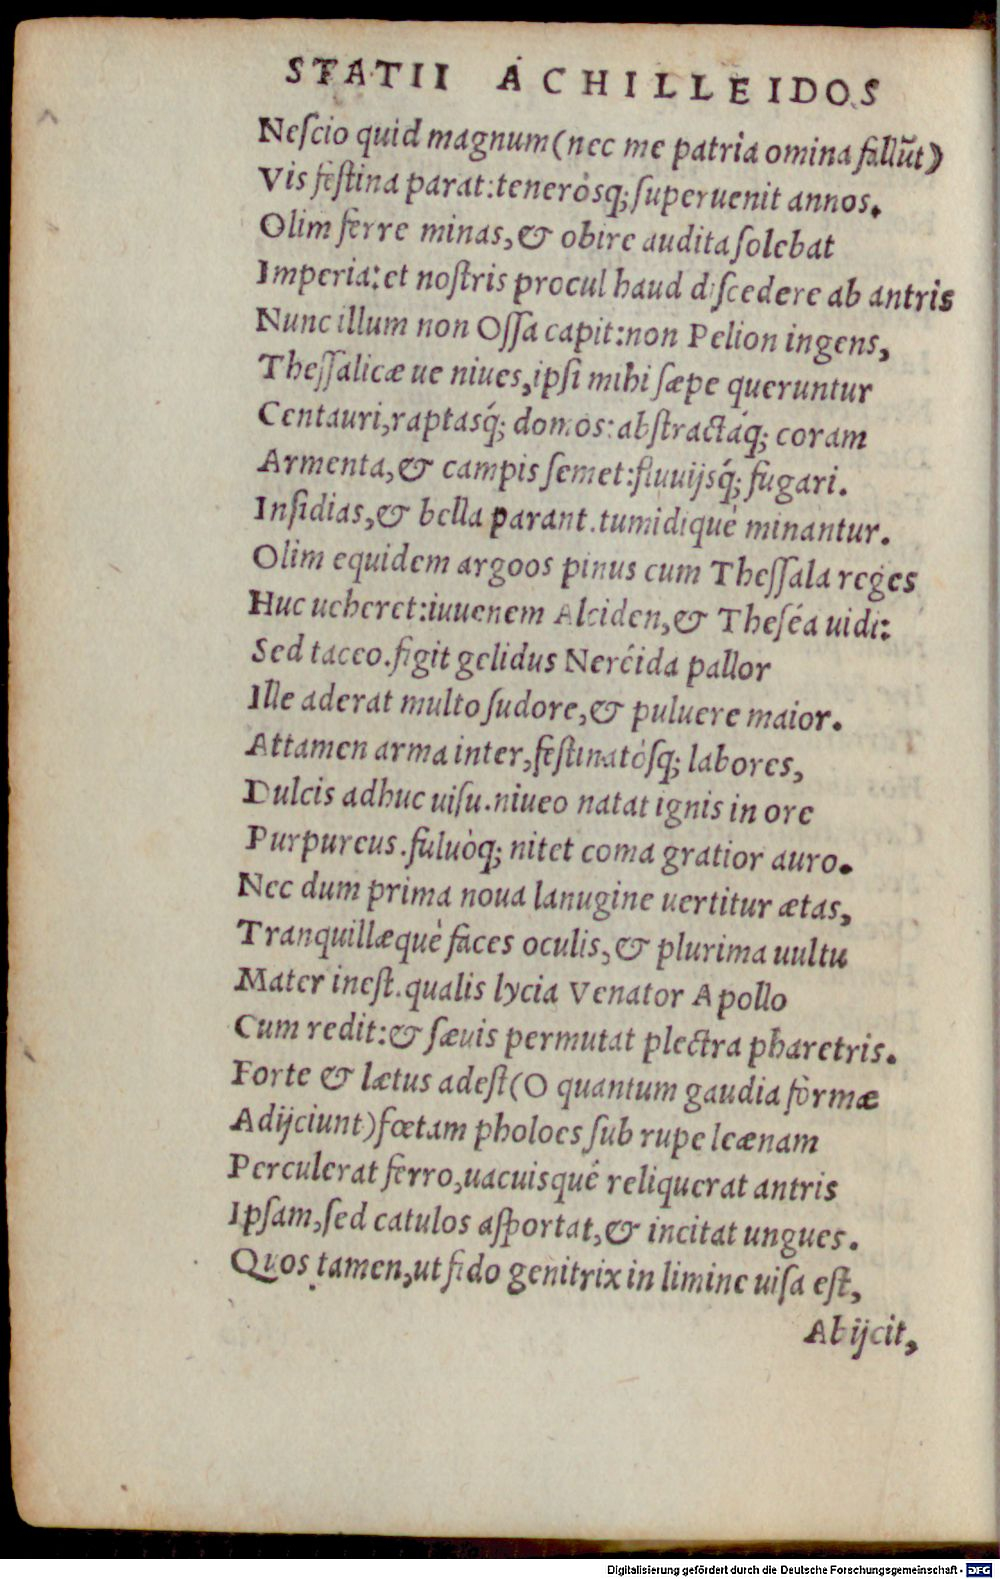 STATII ACHILLEIDOS
Neſcio quid magnum (nec me patria omina fallūt)
Vis feſtina parat: tenerósq; ſuperuenit annos.
Olim ferre minas, & obire audita ſolebat
Imperia: et noſtris procul haud diſcedere ab antris
Nunc illum non Oſſa capit: non Pelion ingens,
Theſſalicæ ue niues, ipſi mihi ſæpe queruntur
Centauri, raptasq́; domos: abſtractáq; coram
Armenta, & campis ſemet: fluuijsq́; fugari.
Inſidias, & bella parant. tumidiquè minantur.
Olim equidem argoos pinus cum Theſſala reges
Huc ueheret: iuuenem Alciden, & Theſéa uidi:
Sed taceo. figit gelidus Neréida pallor
Ille aderat multo ſudore, & puluere maior.
Attamen arma inter, feſtinatòſq; labores,
Dulcis adhuc uiſu. niueo natat ignis in ore
Purpureus. fuluòq; nitet coma gratior auro.
Nec dum prima noua lanugine uertitur ætas,
Tranquillæquè faces oculis, & plurima uultu
Mater ineſt. qualis lycia Venator Apollo
Cum redit: & ſæuis permutat plectra pharetris.
Forte & lætus adeſt (O quantum gaudia formæ
Adijciunt) fœtam pholoes ſub rupe leænam
Perculerat ferro, uacuisqué reliquerat antris
Ipſam, ſed catulos aſportat, & incitat ungues.
Quos tamen, ut fido genitrix in limine uiſa eſt,
Abijcit,
Digitalisierung gefördert durch die Deutsche Forschungsgemeinschaft - DFG